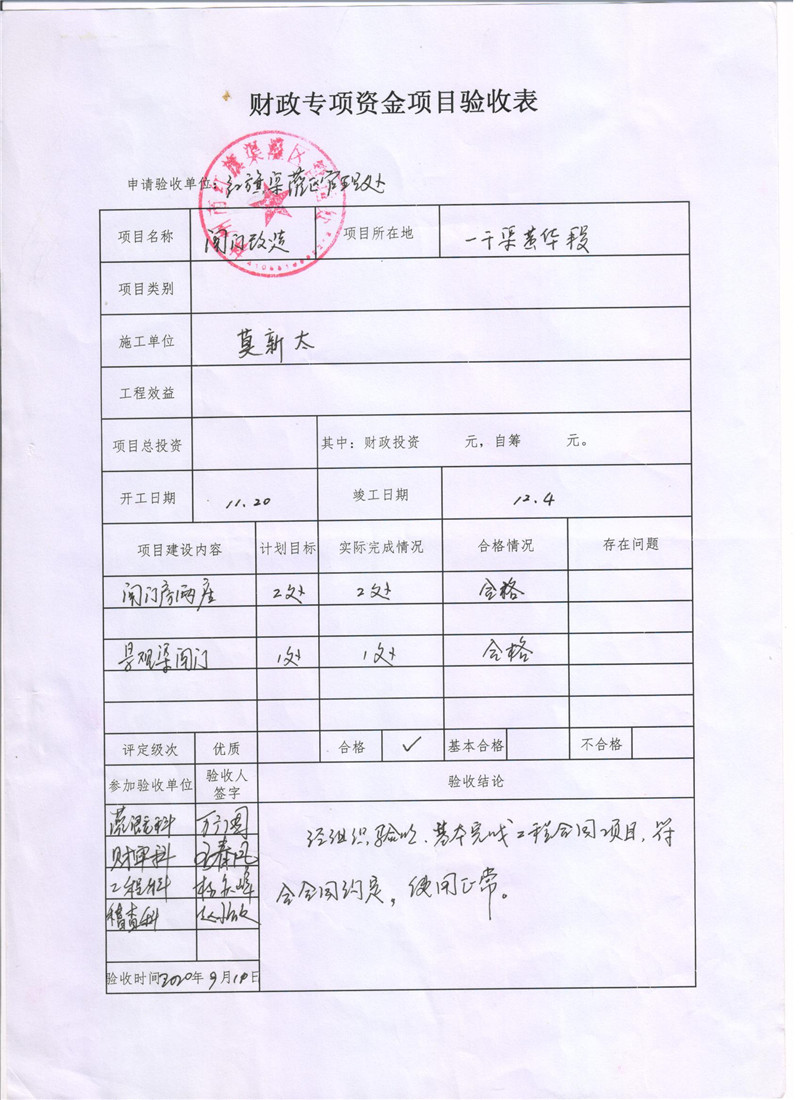 财政专项资金项目验收表
申请验收单位:红旗渠灌区管理处
项目名称 闸门改造 项目所在地 一干渠黄华段
项目类别
施工单位 莫新太
工程效益
项目总投资 其中:财政投资 元,自筹 元。
开工日期 11.20 竣工日期 12.4
项目建设内容 计划目标 实际完成情况 合格情况 存在问题
闸门房两座 2处 2处 合格
景观渠闸门 1处 1处 合格
评定级次 优质 合格 ✓ 基本合格 不合格
参加验收单位 验收人签字 验收结论
灌溉科
财审科 王春风
工程科
稽查科
经组织验收、基本完成工程合同项目,符
合合同约定,使用正常。
验收时间2020年9月14日